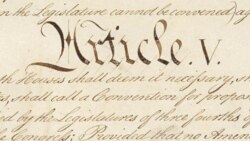 the Legislature cannot be convened) ag
Article. V.
th Houses shall deem it necessary,
, shall call a Convention for propos
ed by the Legislatures of three fourths of
the Congress; Provided that no Amen